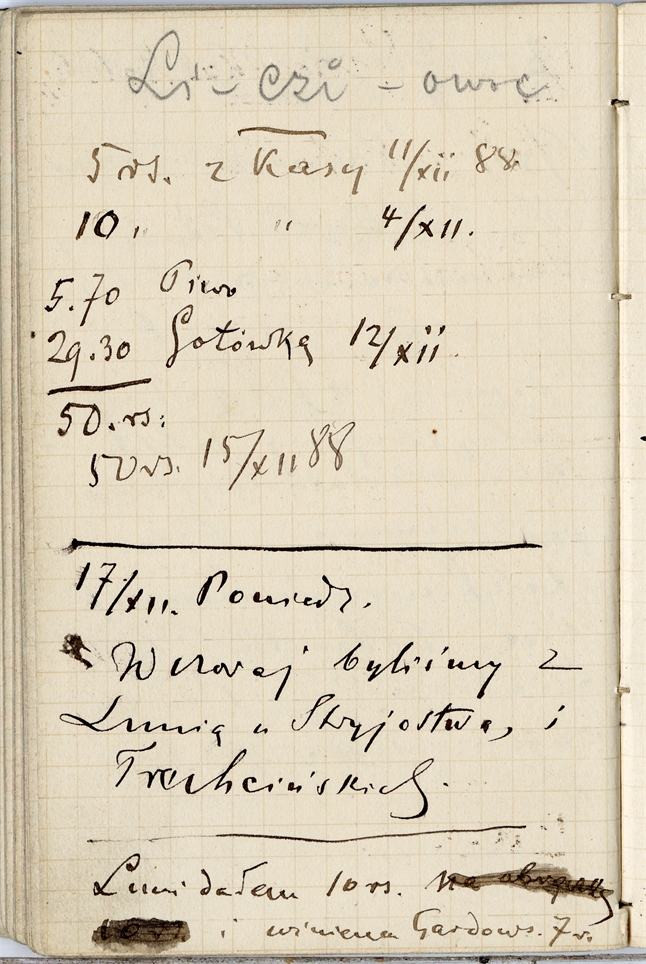 Li - czi - owsc
5 rs. z Kasy 11/xii 88
10 „ „ 4/XII.
5.70 Piwo
29.30 Gotówką 12/xii.
50. rs:
50 rs. 15/XII 88
17/XII. Poniedz.
Wczoraj byliśmy z
Lunią u Stryjostwa, i
Trechcińskich.
Luni dałem 10 rs. na
i winiena Gardows. 7 rs.